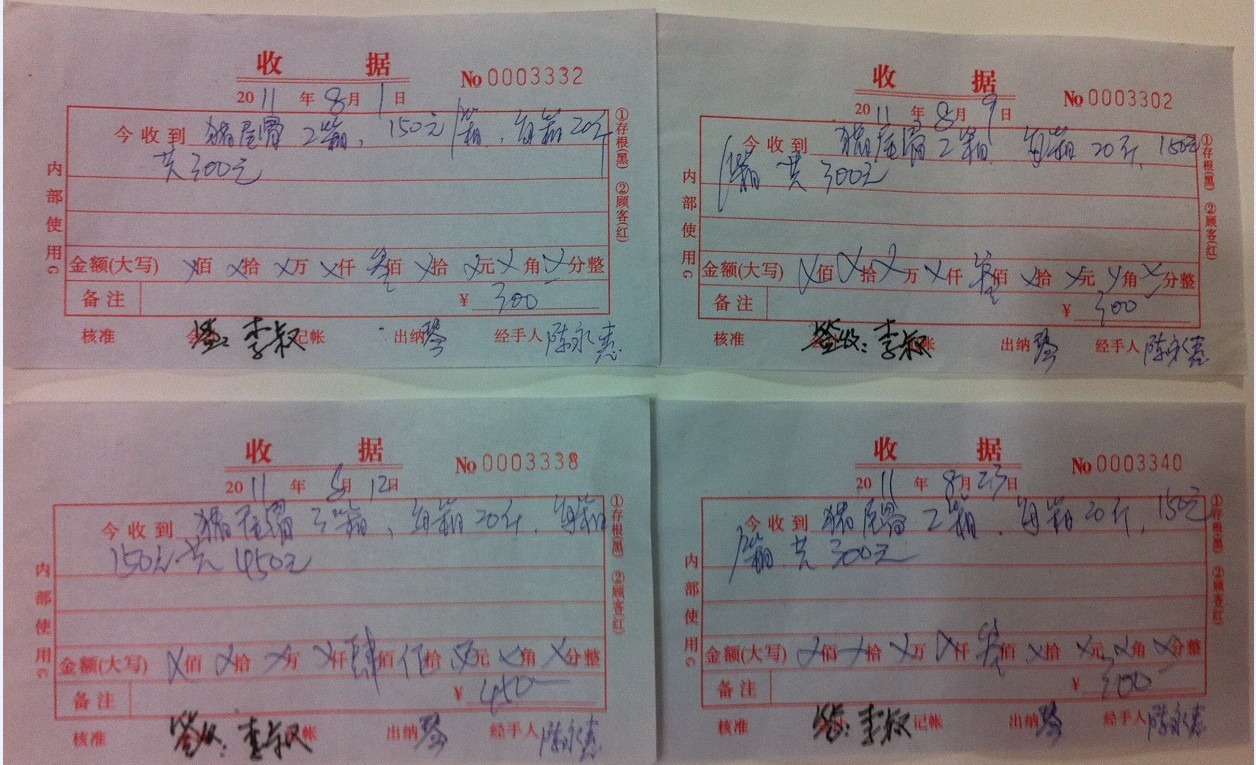 收据
No 0003332
2011年8月1日
今收到 猪尾骨2箱，150元/箱，每箱20斤
共300元
内部使用
①存根(黑) ②顾客(红)
金额(大写) X佰X拾X万X仟叁佰X拾X元X角X分整
备注 ¥ 300
核准 签：李叔 记帐 出纳 琴 经手人 陈永惠
收据
No 0003302
2011年8月9日
今收到 猪尾骨2箱，每箱20斤，150元
/箱 共300元
内部使用
①存根(黑) ②顾客(红)
金额(大写) X佰X拾X万X仟叁佰X拾X元X角X分整
备注 ¥ 300
核准 签收：李叔 出纳 琴 经手人 陈永惠
收据
No 0003338
2011年8月12日
今收到 猪尾骨3箱，每箱20斤，每箱
150元 共450元
内部使用
①存根(黑) ②顾客(红)
金额(大写) X佰X拾X万X仟肆佰伍拾X元X角X分整
备注 ¥ 450
核准 签收：李叔 记帐 出纳 琴 经手人 陈永惠
收据
No 0003340
2011年8月23日
今收到 猪尾骨2箱，每箱20斤，150元
/箱 共300元
内部使用
①存根(黑) ②顾客(红)
金额(大写) X佰X拾X万X仟叁佰X拾X元X角X分整
备注 ¥ 300
核准 签：李叔 记帐 出纳 琴 经手人 陈永惠